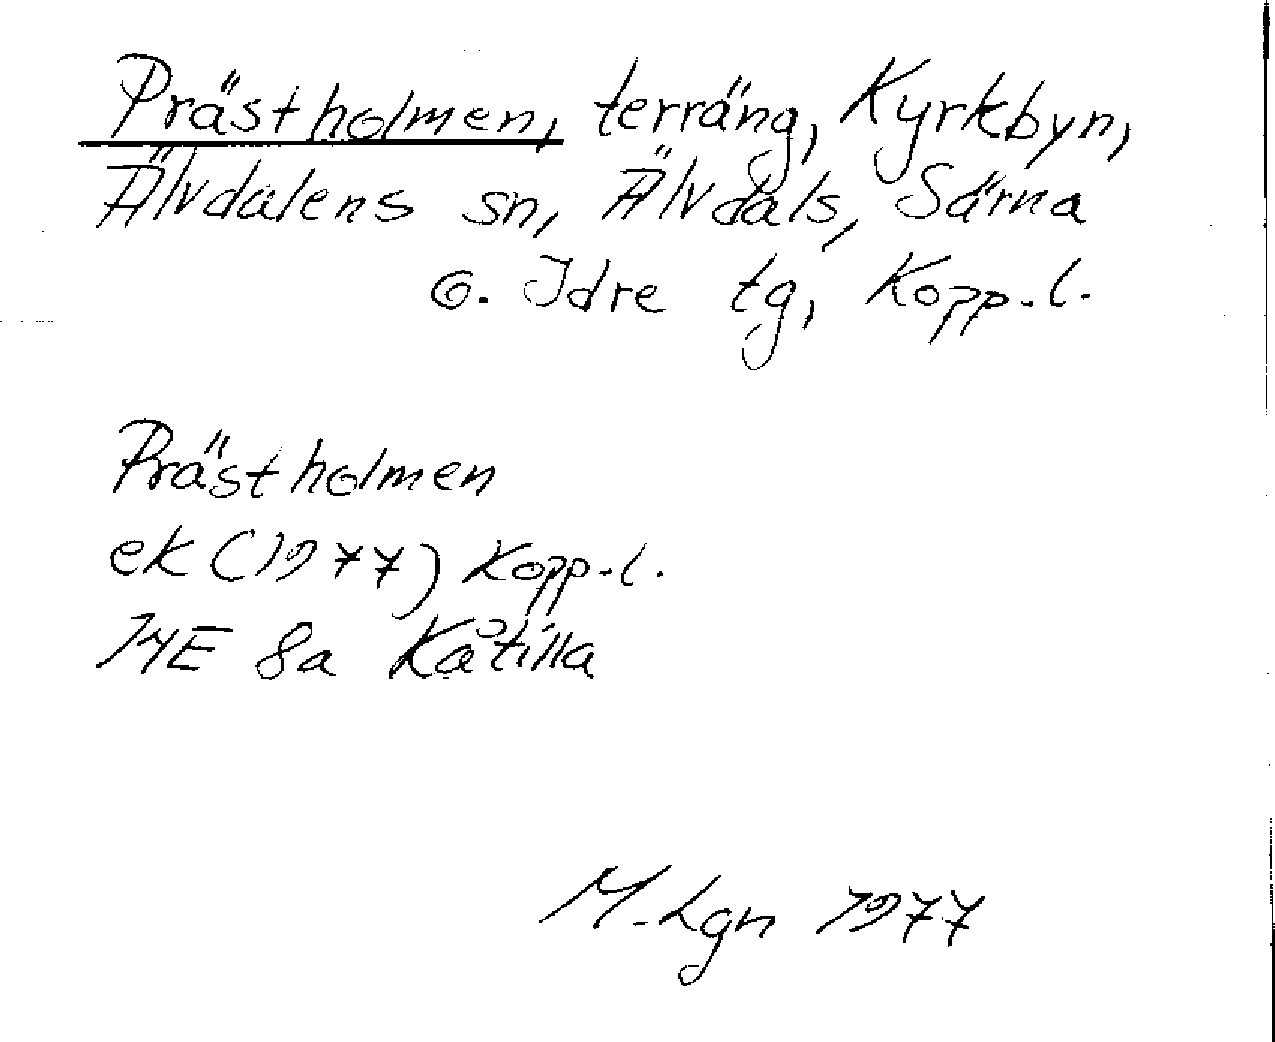 Prästholmen, terräng, Kyrkbyn,
Älvdalens sn, Älvdals, Särna
o. Idre tg, Kopp.l.
Prästholmen
ek (1977) Kopp.l.
14E 8a Kåtilla
M. Lgn 1977